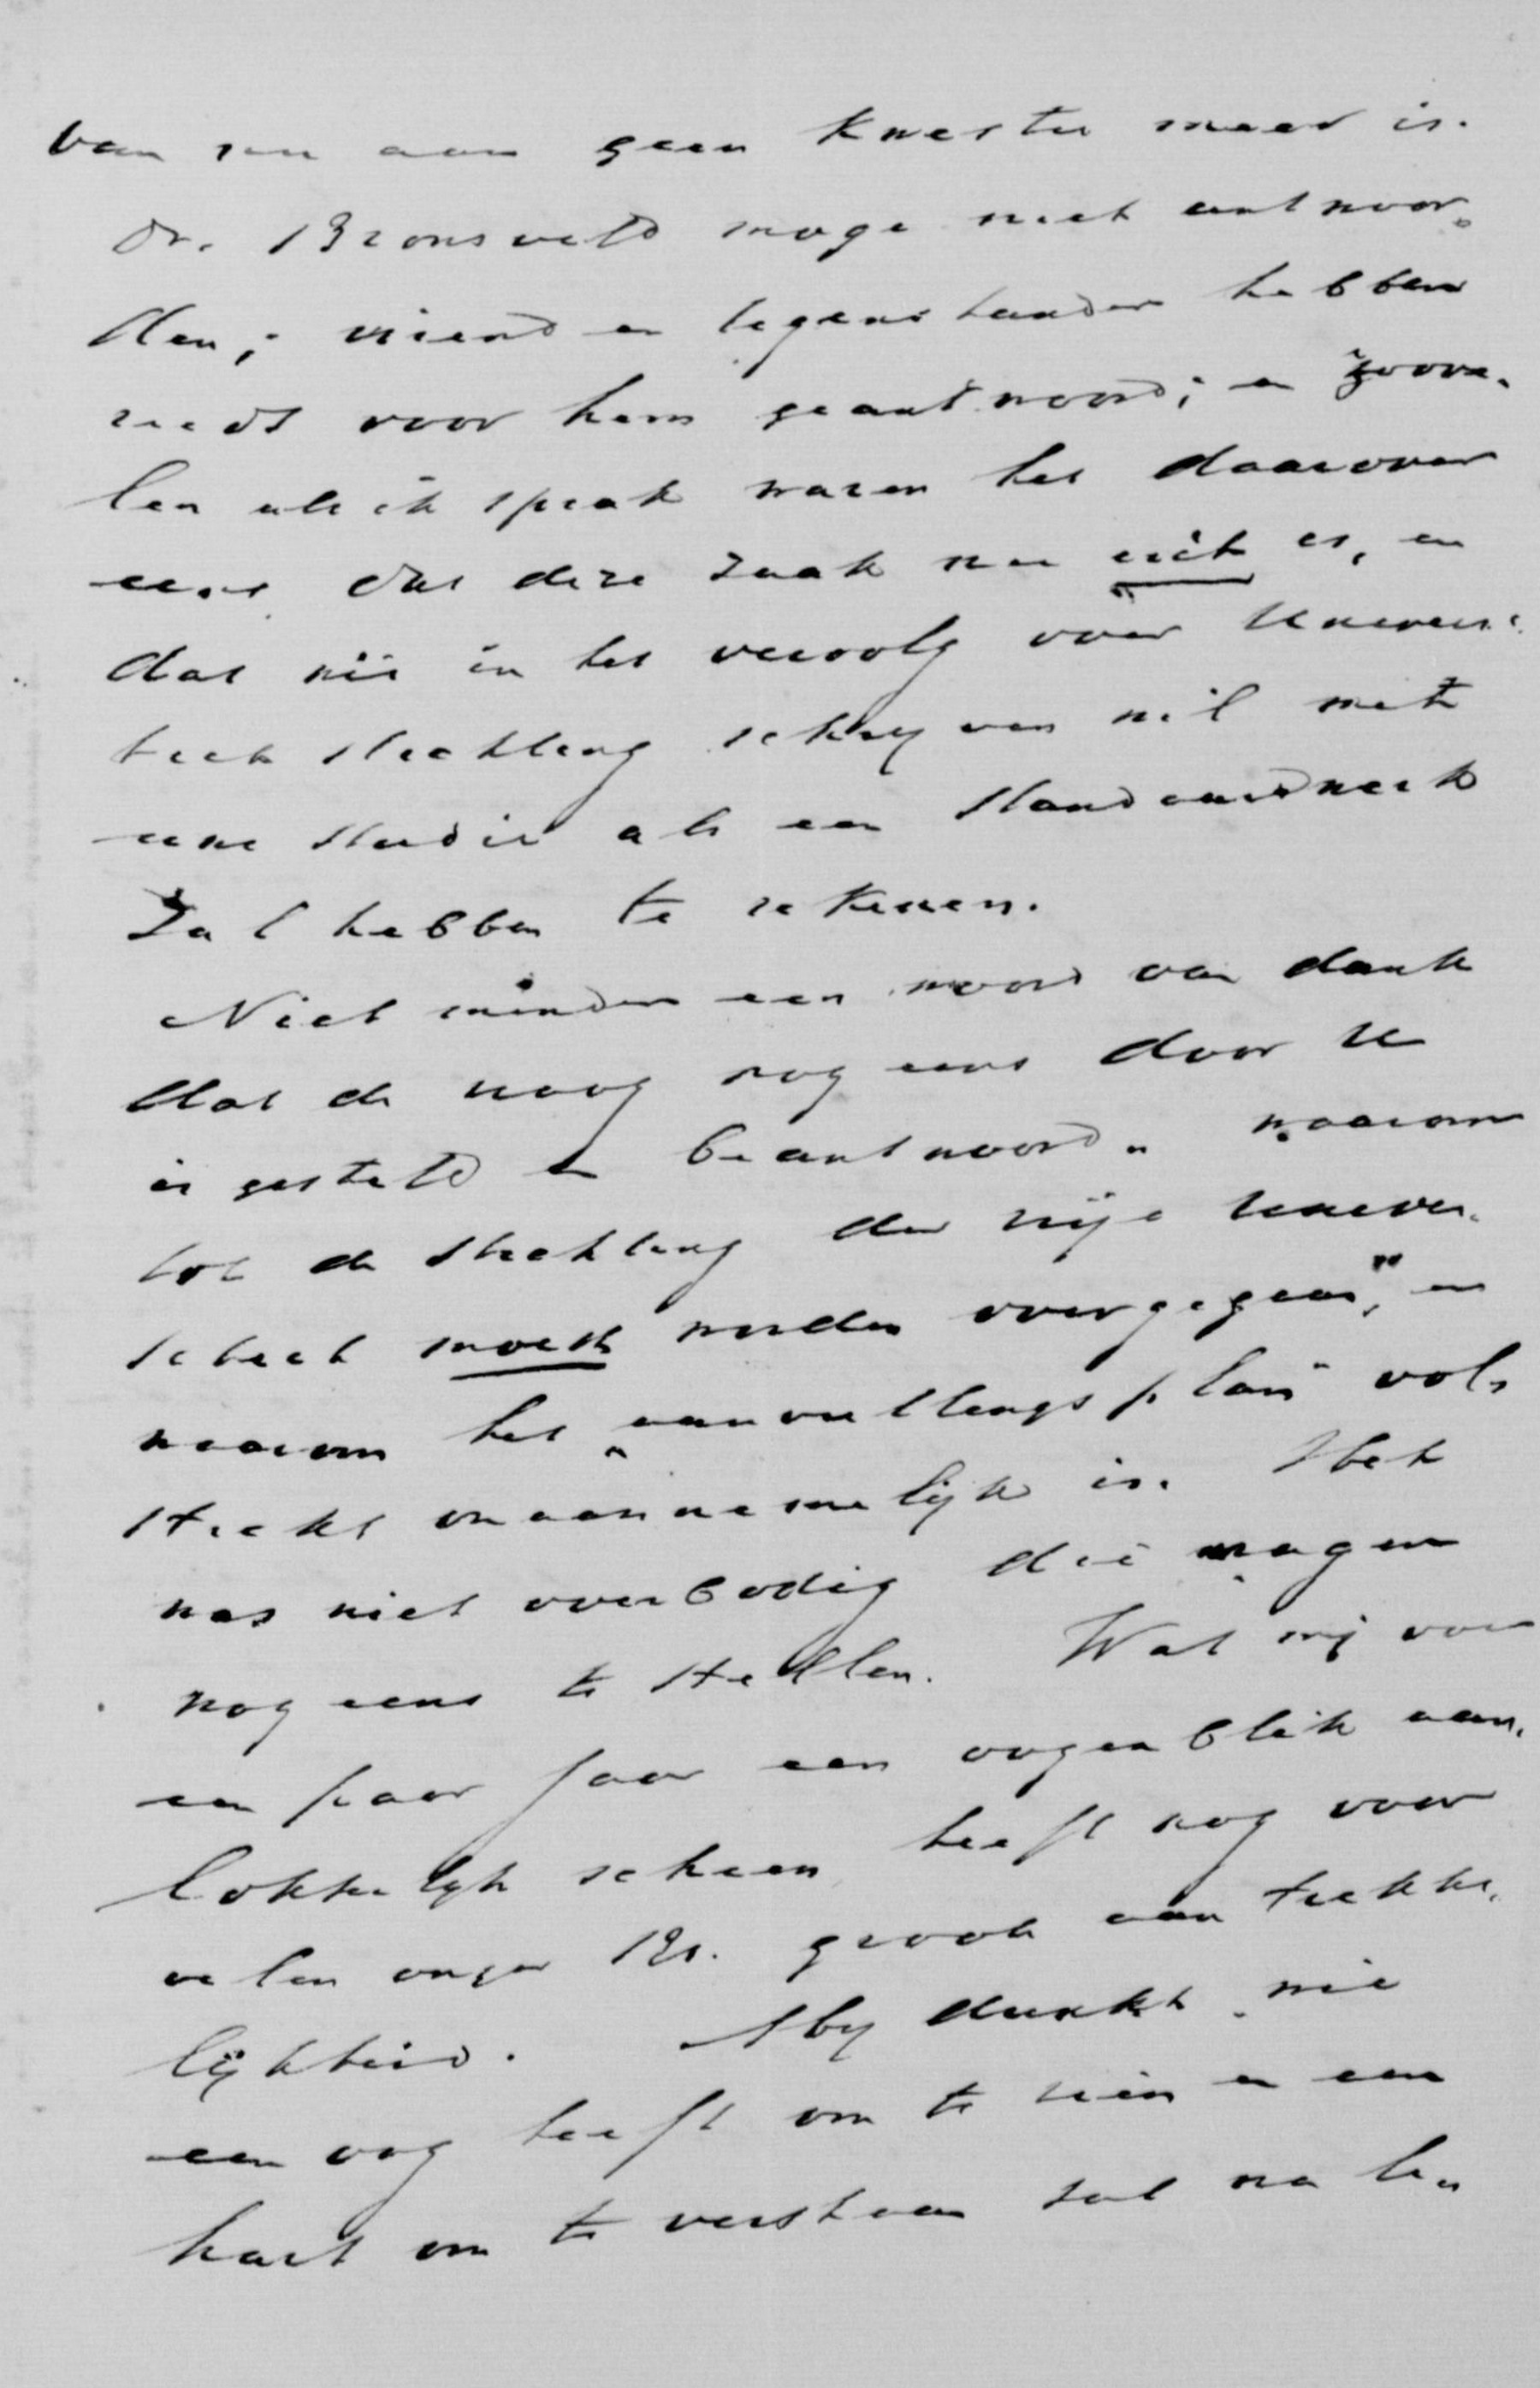 van nu aan geen kwestie meer is.
Dr. Bronsveld moge niet antwoor-
den; vriend en tegenstander hebben
reeds voor hem geantwoord; en zoove-
len als ik sprak waren het daarover
eens dat deze zaak nu uit is, en
dat wie in het vervolg over Univers-
teit stichting schrijven wil met
eene studie als een Standaardwerk
Zal hebben te rekenen.
Niet minder een woord van dank
dat de vraag nog eens door U
is gesteld en beantwoord „waarom
tot de stichting der vrije Univer-
siteit moest worden overgegaan", en
waarom het „aanvullingsplan" vol-
strekt onaannemelijk is. Het
was niet overbodig die vragen
nog eens te stellen. Wat mij voor
een paar jaar een oogenblik aan-
lokkelijk scheen heeft nog voor
velen onzer Br. groote aantrekke-
lijkheid. My dunkt wie
een oog heeft om te zien en een
hart om te verstaan zal na le-